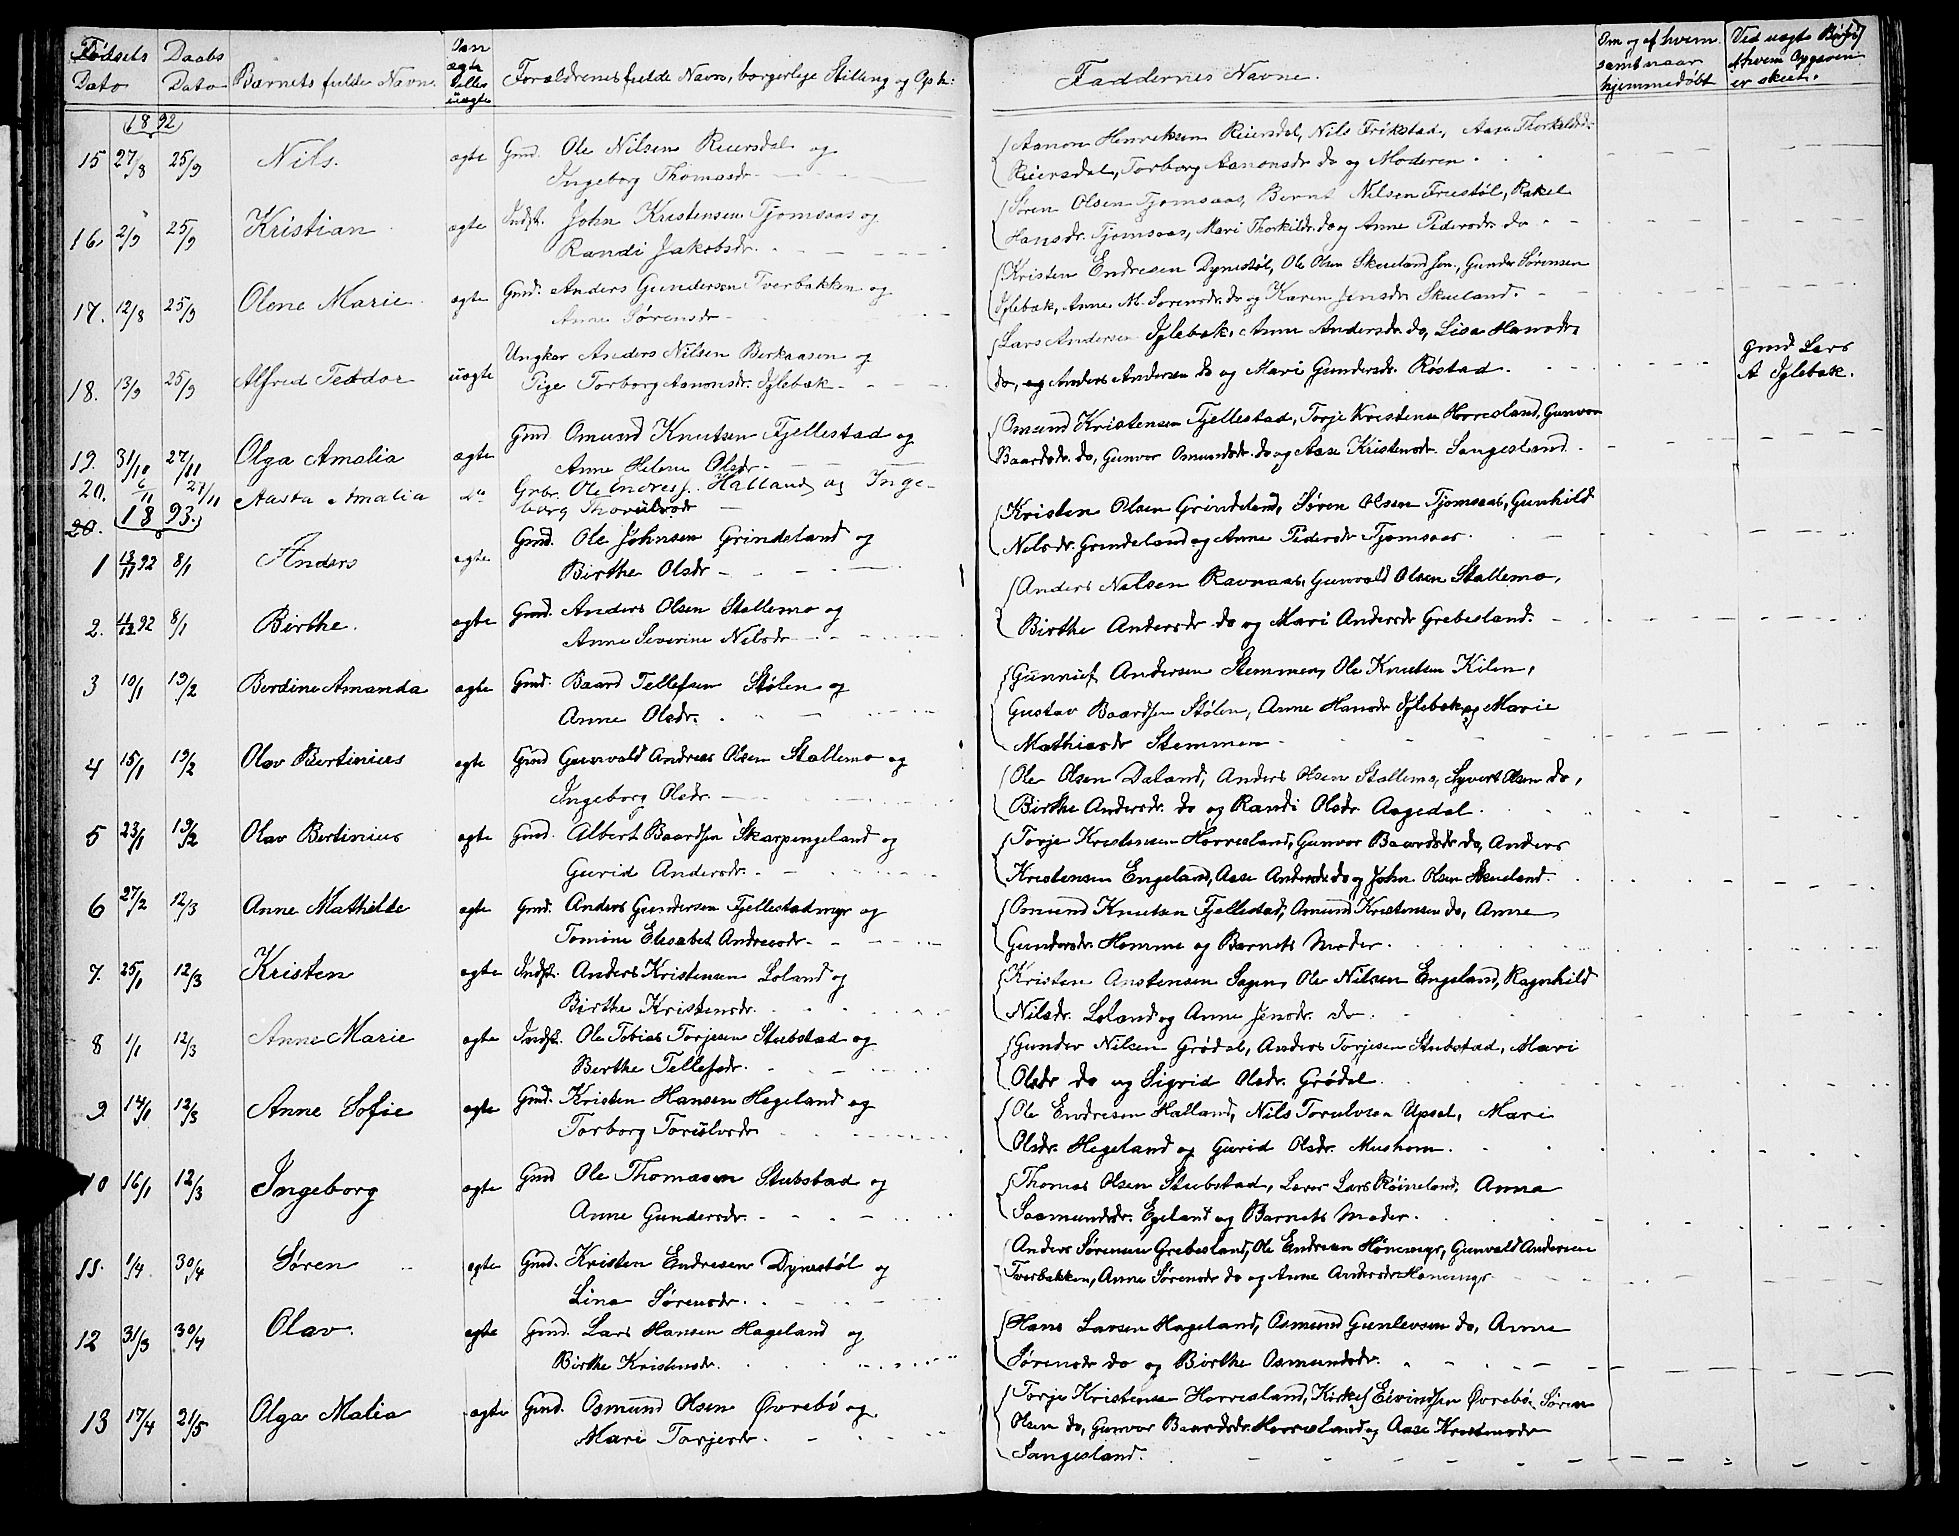 Fødsels Dato | Daabs Dato | Barnets fulde Navn. | Om ægte eller uægte | Forældrenes fulde Navn, borgerlige Stilling og Op.h:
Faddernes Navne. | Om og af hvem samt naar hjemmedøbt | Ved uægte Børn af hvem Opgaven er skeet.
1892
15 27/8 25/9 Nils. ægte Gmd. Ole Nilsen Reiersdal og
Ingeborg Thomasdr.
Aanon Henriksen Reiersdal, Nils Frikstad, Aase Thorkildsdr.
Reiersdal, Torborg Aanonsdr. do og Moderen.
16. 2/9 25/9 Kristian ægte Indst. John Kristensen Tjomsaas og
Randi Jakobsdr.
Søren Olsen Tjomsaas, Bernt Nilsen Frestøl, Rakel
Hansdr. Tjomsaas, Mari Thorkildr. do og Anne Pedersdr. do
17. 12/8 25/9 Olene Marie. ægte Gmd. Anders Gundersen Tverbakken og
Anne Sørensdr.
Kristen Endresen Dynestøl, Ole Olsen Skueland sen., Gunder Sørensen
Iglebæk, Anne M. Sørensdr. do og Karen Jensdr. Skueland.
18. 13/9 25/9 Alfred Teodor uægte Ungkar Anders Nilsen Berkaasen og
Pige Torborg Aanonsdr. Iglebæk
Lars Andersen Iglebæk, Anne Andersdr. do, Lisa Hansdr.
do, og Anders Andersen do og Mari Gundersdr. Røstad.
Gmd Lars
A Iglebæk.
19. 31/10 27/11 Olga Amalia ægte Gmd Omund Knutsen Fjellestad og
Anne Helene Olsdr.
Omund Kristensen Fjellestad, Torje Kristensen Horrisland, Gunvor
Baardsdr. do, Gunvor Osmundsdr. do og Aase Kristensdr. Sangesland.
20. 6/11 27/11 Aasta Amalia do Grbr. Ole Endres. Halland og Inge-
borg Thorulvsdr
20. 1893.
1 13/11 92 8/1 Anders ægte Gmd. Ole Johnsen Grindeland og
Birthe Olsdr
Kristen Olsen Grindeland, Søren Olsen Tjomsaas, Gunhild
Nilsdr. Grindeland og Anne Pedersdr Tjomsaas.
2. 4/12 92 8/1 Birthe. ægte Gmd. Anders Olsen Stallemo og
Anne Severine Nilsdr
Anders Nilsen Ravnaas, Gunvald Olsen Stallemo,
Birthe Andersdr do og Mari Andersdr Grebesland.
3 10/1 19/2 Berdine Amanda ægte Gmd. Baard Tellefsen Stølen og
Anne Olsdr.
Gunnief Andersen Stemmen, Ole Knutsen Kilen,
Gustav Baardsen Stølen, Anne Hansdr Iglebæk og Marie
Mathiasdr Stemmen
4 15/1 19/2 Olav Bertinius ægte Gmd Gunvald Andreas Olsen Stallemo og
Ingeborg Olsdr.
Ole Olsen Daland, Anders Olsen Stallemo, Syvert Olsen do,
Birthe Andersdr. do og Randi Olsdr Aagedal.
5 23/1 19/2 Olav Bertinius ægte Gmd. Albert Baardsen Skarpengeland og
Gurid Andersdr.
Torje Kristensen Horrisland, Gunvor Baardsdr do, Anders
Kristensen Engeland, Aase Andersdr do og John Olsen Skueland.
6 27/2 12/3 Anne Mathilde ægte Gmd. Anders Gundersen Fjellestadmyr og
Tomine Elisabet Andreasdr.
Osmund Knutsen Fjellestad, Amund Kristensen do, Anne
Gundersdr. Homme og Barnets Moder.
7. 25/1 12/3 Kristen ægte Indst. Anders Kristensen Loland og
Birthe Kristensdr.
Kristen Anstensen Sagen, Ole Nilsen Engeland, Ragnhild
Nilsdr. Loland og Anne Jensdr. do.
8 1/1 12/3 Anne Marie ægte Indst. Ole Tobias Torjesen Stubstad og
Berthe Tellefsdr.
Gunder Nilsen Grødal, Anders Torjesen Stubstad, Mari
Olsdr do og Sigrid Olsdr. Grødal.
9. 14/1 12/3 Anne Sofie ægte Gmd. Kristen Hansen Hageland og
Torborg Torulvsdr
Ole Endresen Halland, Nils Torulvsen Upsal, Mari
Olsdr. Hageland og Gurid Olsdr. Mushom.
10 16/1 12/3 Ingeborg ægte Gmd Ole Thomasen Stubstad og
Anne Gundersdr.
Thomas Olsen Stubstad, Lærer Lars Røineland, Anna
Saamundsdr. Egeland og Barnets Moder.
11. 1/4. 30/4 Søren ægte Gmd. Kristen Endresen Dynestøl og
Lina Sørensdr.
Anders Sørensen Grebesland, Ole Endresen Hønemyr, Gunvald Andersen
Tverbakken, Anne Sørensdr do og Anne Andersdr Hønemyr
12 31/3 30/4 Olav. ægte Gmd. Lars Hansen Hageland og
Birthe Kristensdr.
Hans Larsen Hageland, Osmund Gunlevsen do, Anne
Sørensdr do og Birthe Osmundsdr.
13 17/4 21/5 Olga Malia ægte Gmd. Osmund Olsen Øvrebø og
Mari Torjesdr.
Torje Kristensen Horrisland, Kirkes. Eivindsen Øvrebø, Søren
Olsen do, Gunvor Baardsdr. Horrisland og Aase Kristensdr
Sangesland.